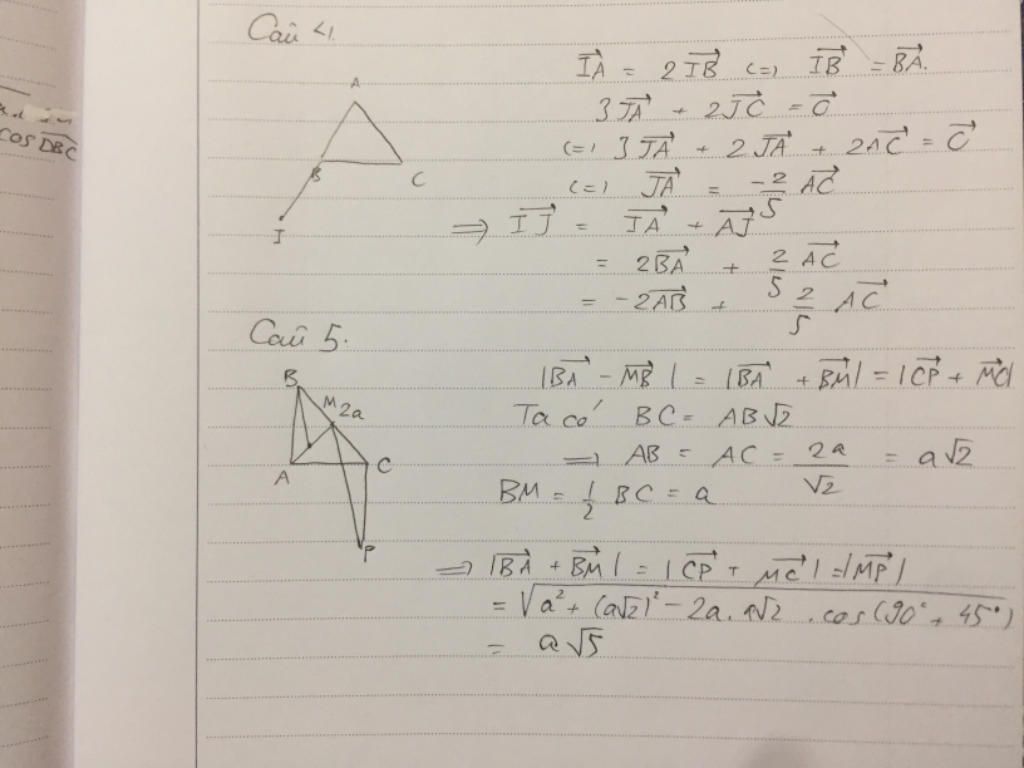 cos DBC
Câu 4.
A
B
C
I
IA = 2IB (=) IB = BA.
3JA + 2JC = O
(=) 3JA + 2JA + 2AC = O
(=) JA = -2/5 AC
=> IJ = IA + AJ
= 2BA + 2/5 AC
= -2AB + 2/5 AC
Câu 5.
B
M 2a
A
C
P
|BA - MB| = |BA + BM| = |CP + MC|
Ta có BC = AB√2
=> AB = AC = 2a/√2 = a√2
BM = 1/2 BC = a
=> |BA + BM| = |CP + MC| = |MP|
= √a² + (a√2)² - 2a.a√2 . cos(90° + 45°)
= a√5